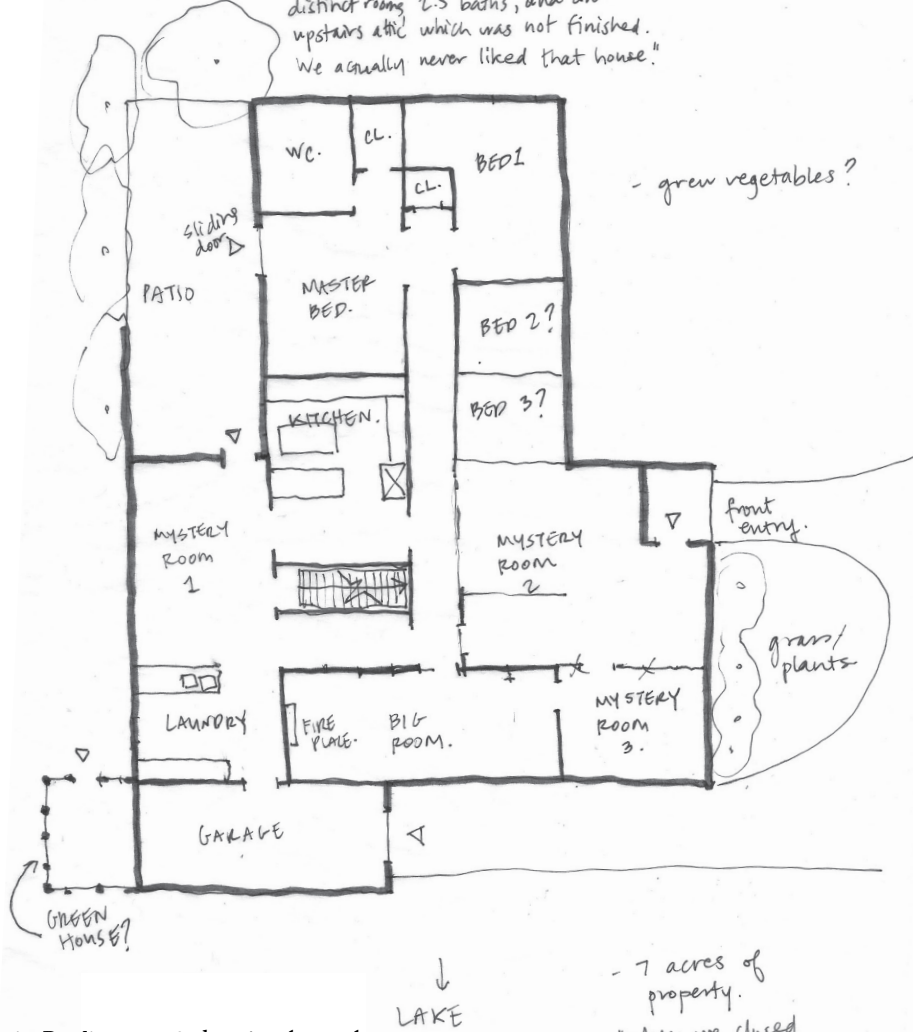 distinct rooms, 2.5 baths, and an
upstairs attic which was not finished.
We actually never liked that house."
WC.
CL.
CL.
BED 1
- grew vegetables?
sliding
door
PATIO
MASTER
BED.
BED 2?
BED 3?
KITCHEN.
MYSTERY
ROOM
1
MYSTERY
ROOM
2
front
entry.
grass/
plants
LAUNDRY
FIRE
PLACE.
BIG
ROOM.
MYSTERY
ROOM
3.
GARAGE
GREEN
HOUSE?
LAKE
- 7 acres of
property.
closed